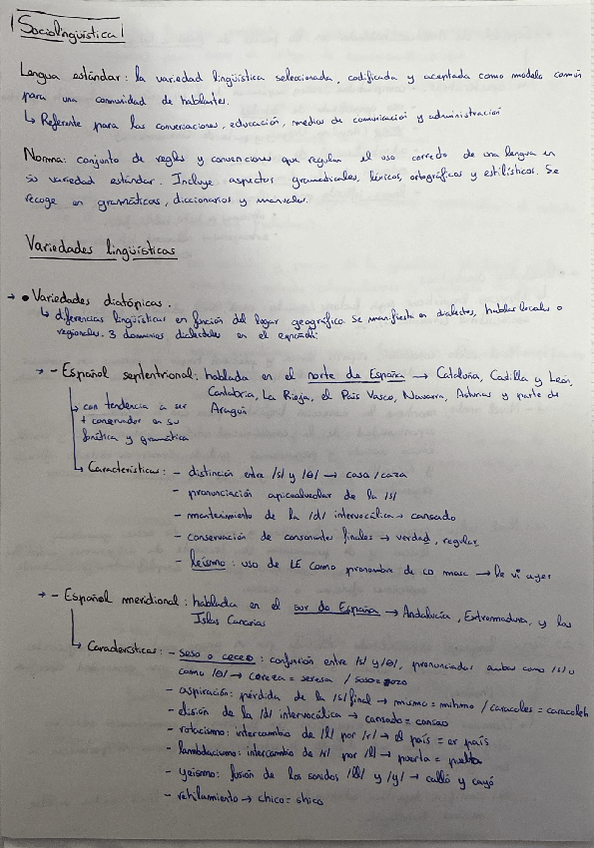 Sociolingüística
Lengua estándar: la variedad lingüística seleccionada, codificada y aceptada como modelo común
para una comunidad de hablantes.
↳ Referente para las conversaciones, educación, medios de comunicación y administración
Norma: conjunto de reglas y convenciones que regulan el uso correcto de una lengua en
su variedad estándar. Incluye aspectos gramaticales, léxicos, ortográficos y estilísticos. Se
recoge en gramáticas, diccionarios y manuales.
Variedades lingüísticas
→ • Variedades diatópicas.
↳ diferencias lingüísticas en función del lugar geográfico. Se manifiesta en dialectos, hablas locales o
regionales. 3 dominios dialectales en el español:
→ - Español septentrional: hablada en el norte de España → Cataluña, Castilla y León,
Cantabria, La Rioja, el País Vasco, Navarra, Asturias y parte de
Aragón
→ con tendencia a ser
+ conservador en su
fonética y gramática
↳ Características: - distinción entre /s/ y /θ/ → casa / caza
- pronunciación apicoalveolar de la /s/
- mantenimiento de la /d/ intervocálica → cansado
- conservación de consonantes finales → verdad, regular
- leísmo: uso de LE como pronombre de CD masc → le vi ayer
→ - Español meridional: hablada en el sur de España → Andalucía, Extremadura, y las
Islas Canarias
↳ Características: - seseo o ceceo: confusión entre /s/ y /θ/, pronunciadas ambas como /s/ o
como /θ/ → cereza = seresa /
- aspiración: pérdida de la /s/ final → mismo = mihmo / caracoles = caracoleh
- elisión de la /d/ intervocálica → cansado = cansao
- rotacismo: intercambio de /l/ por /r/ → el país = er país
- lambdacismo: intercambio de /r/ por /l/ → puerta = puelta
- yeísmo: fusión de los sonidos /ll/ y /y/ → calló y cayó
- rehilamiento → chico = shico